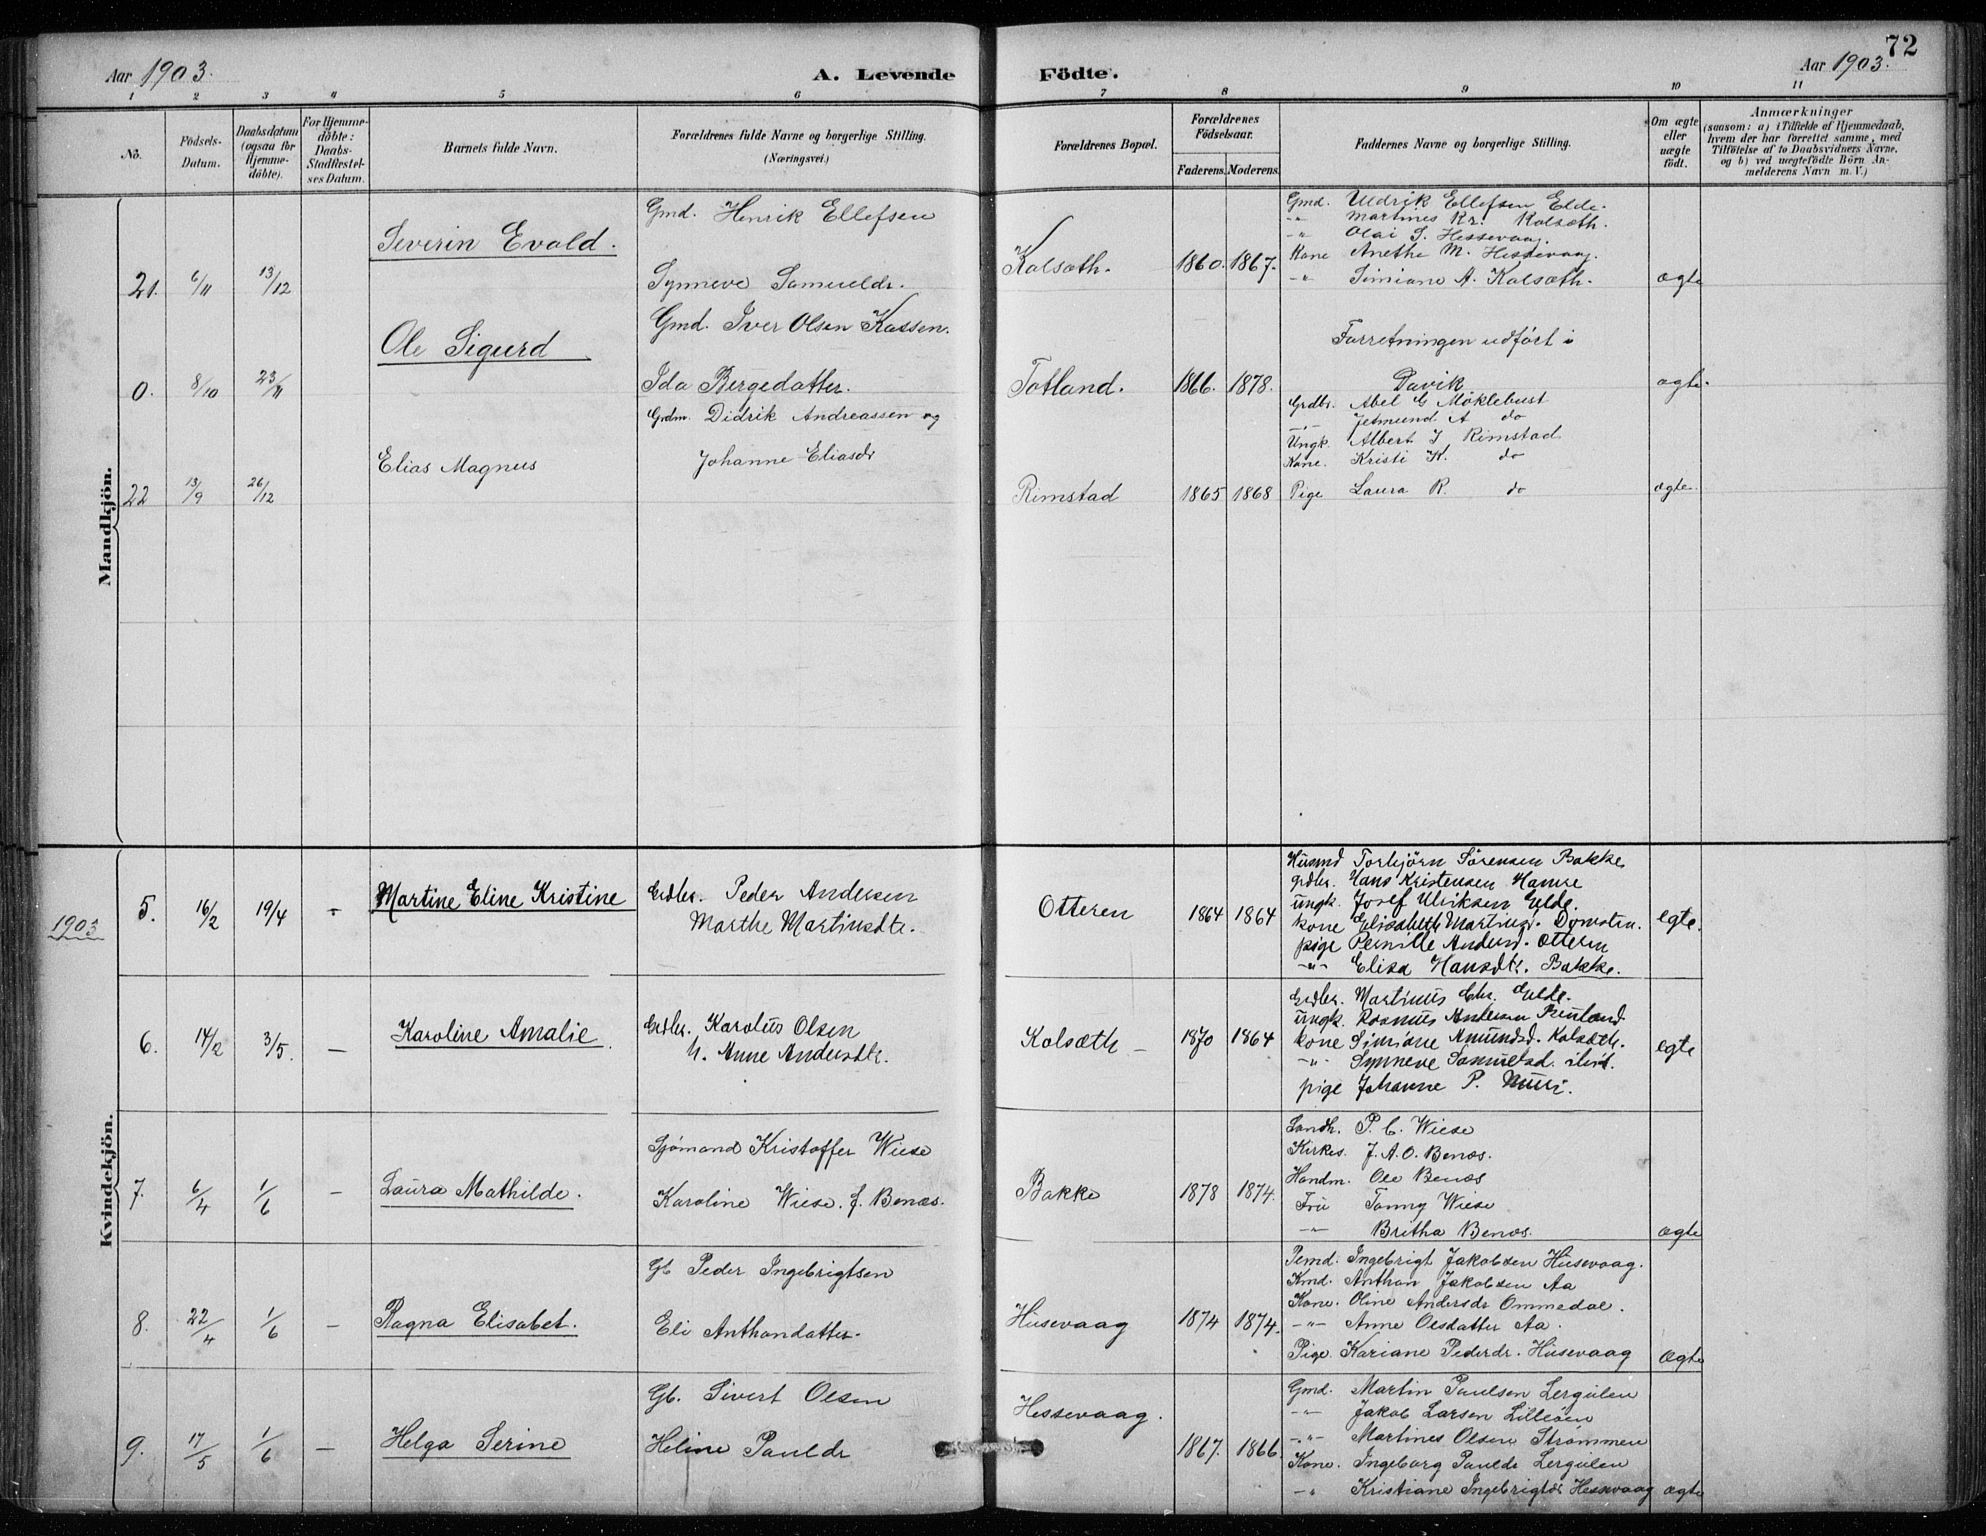 72
Aar 1903. A. Levende Födte. Aar 1903.
1 2 3 4 5 6 7 8 9 10 11
No.
Födsels-
Datum.
Daabsdatum
(ogsaa for
Hjemme-
döbte).
For Hjemme-
döbte:
Daabs-
Stadfæstel-
ses Datum.
Barnets fulde Navn.
Forældrenes fulde Navne og borgerlige Stilling.
(Næringsvei.)
Forældrenes Bopæl.
Forældrenes
Födselsaar.
Faderens. Moderens.
Faddernes Navne og borgerlige Stilling.
Om ægte
eller
uægte
födt.
Anmærkninger
(saasom: a) i Tilfælde af Hjemmedaab,
hvem der har forrettet samme, med
Tilföielse af to Daabsvidners Navne,
og b) ved uægtefödte Börn An-
melderens Navn m. V.)
Mandkjön.
21. 6/11 13/12
Severin Evald.
Gmd. Henrik Ellefsen
Synneve Samueldr.
Kolsæth. 1860. 1867.
Gmd. Uldrik Ellefsen Elde.
-"- Martines Kr. Kolsæth.
-"- Olai S. Hessevaag.
Kone Anethe M. Hessevaag.
-"- Simiane A. Kolsæth.
ægte
0. 8/10 23/11
Ole Sigurd
Gmd. Iver Olsen Kassen.
Ida Bergedatter.
Totland. 1866. 1878.
Forretningen udfört i
Davik
ægte.
22 13/9 26/12
Elias Magnus
Grdm. Didrik Andreassen og
Johanne Eliasdr
Rimstad 1865 1868
Grdbr. Abel G Möklebust
-"- Jetmund A do
Ungk. Albert I Rimstad
Kone. Kristi K. do
Pige Laura R. do
ægte.
Kvindekjön.
1903
5. 16/2 19/4 -
Martine Eline Kristine
Grdbr. Peder Andersen
Marthe Martinsdtr.
Otteren 1864 1864
Husmd Torbjörn Sörensen Bakke
grdbr. Hans Kristensen Hamre
ungk. Josef Ulriksen Elde.
kone Elisabeth Martinsd. Domsten.
pige Pernille Andersd. Otteren
-"- Elisa Hansdtr. Bakke.
egte.
6. 14/2 3/5. -
Karoline Amalie.
Grdbr. Karolus Olsen
h. Anne Andersdtr.
Kolsæth 1870 1864
Grdbr. Martinus Chr. Elde.
ungk. Rasmus Andersen
kone Simiane Amundsd. Kolsæth.
-"- Synneve Samuelsd.
pige Johanne P. Muri.
egte
7. 6/4 1/6 -
Laura Mathilde.
Sjömand Kristoffer Wiese
Karoline Wiese. f. Benæs.
Bakke 1878 1874.
Landh. P. C. Wiese
Kirkes. J. A. O. Benæs.
Handm. Ole Benæs
Frü Tonny Wiese
-"- Britha Benæs.
ægte
8. 22/4 1/6 -
Ragna Elisabet.
Gb Peder Ingebrigtsen
Eli Anthondatter.
Husevaag 1874 1874.
Pemd. Ingebrigt Jakobsen Husevaag.
Kmd. Anthon Jakobsen Aa
Kone. Oline Andersdr Ommedal.
-"- Anne Olsdatter Aa.
Pige. Kariane Pederdr. Husevaag
Ægte
9. 17/5 1/6 -
Helga Serine
Gb. Sivert Olsen
Heline Pauldr
Hessevaag. 1867. 1866.
Gmd. Martin Paulsen Lergulen
-"- Jakob Larsen Lilleöen
-"- Martines Olsen Strömmen
Kone. Ingeborg Pauldr Lergulen
-"- Kristiane Ingebrigtdr Hessevaag
ægte